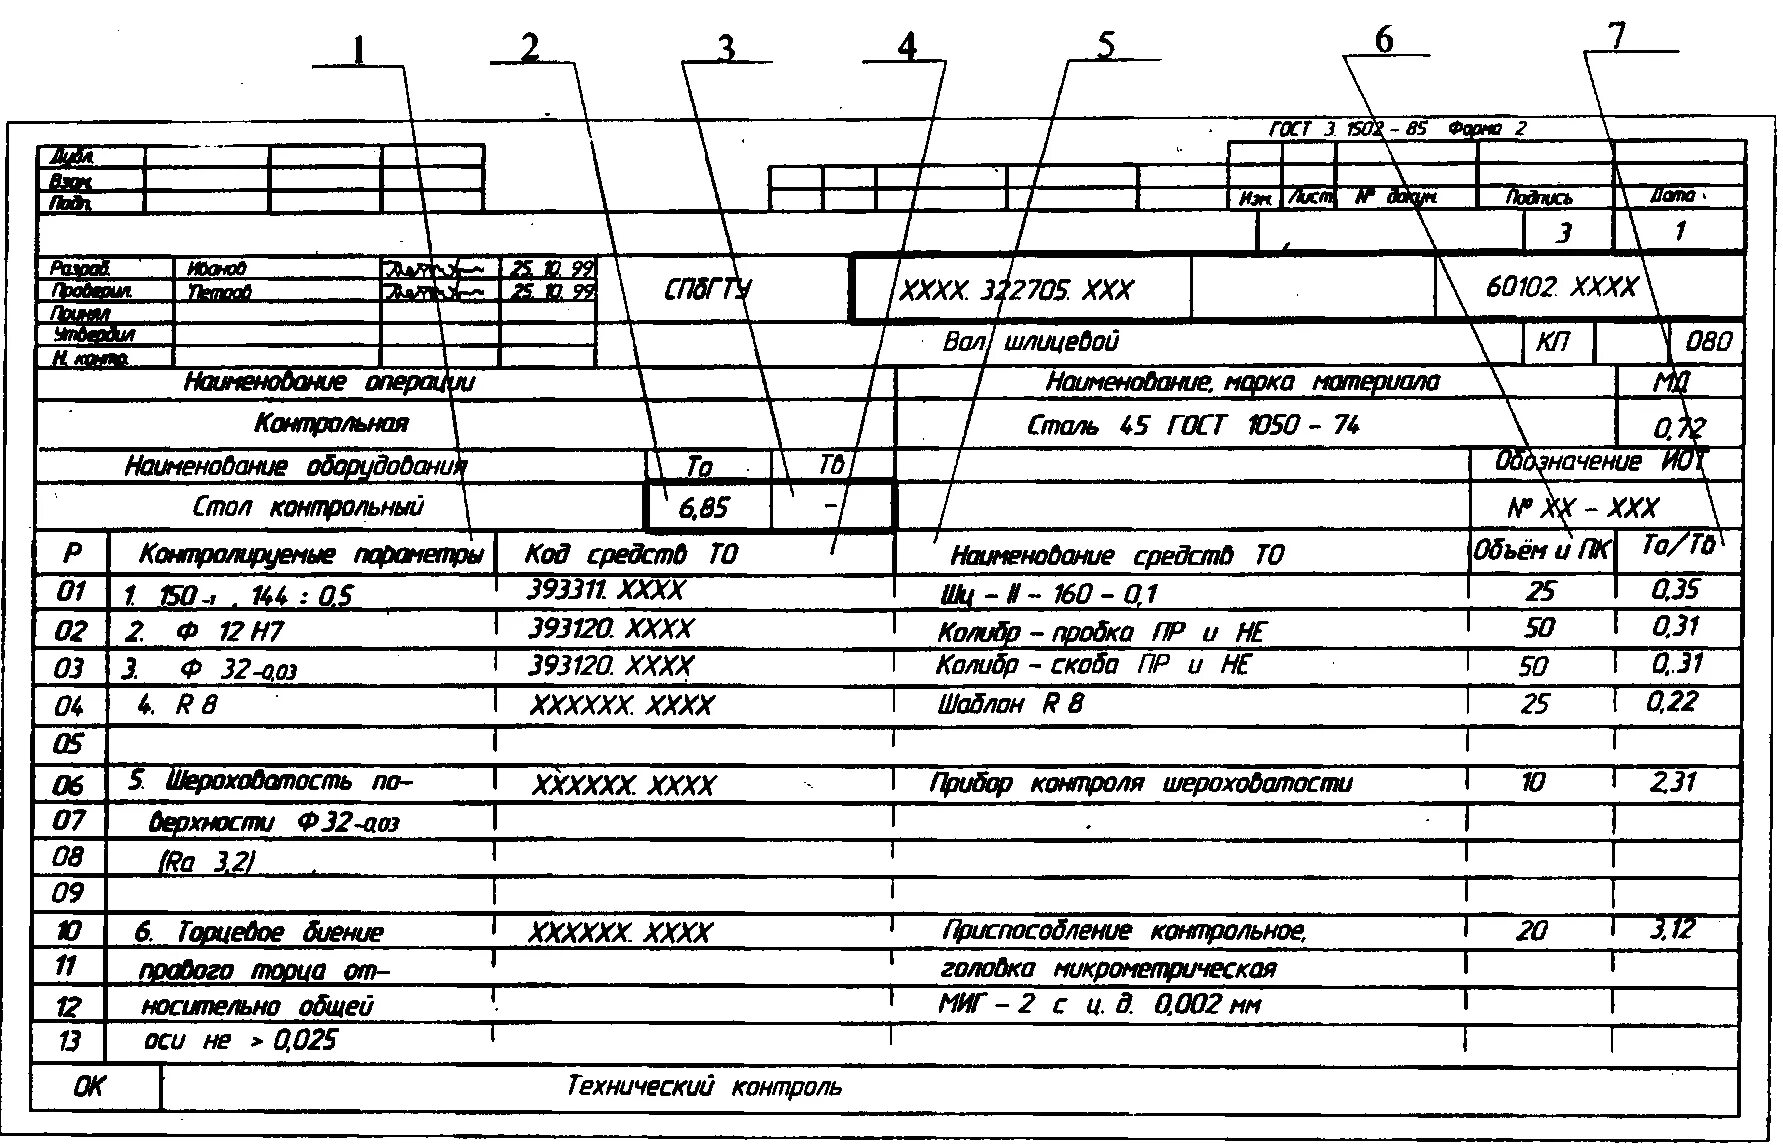 1 2 3 4 5 6 7
ГОСТ 3.1502-85 Форма 2
Дубл.
Взам.
Подп.
Изм. Лист № докум. Подпись Дата
3 1
Разраб. Иванов 25.10.99
Проверил. Петров 25.10.99
Принял
Утвердил
Н. контр.
СПбГТУ XXXX. 322705. XXX 60102. XXXX
Вал шлицевой КП 080
Наименование операции Наименование, марка материала МД
Контрольная Сталь 45 ГОСТ 1050-74 0,72
Наименование оборудования То Тв Обозначение ИОТ
Стол контрольный 6,85 - № XX-XXX
Р Контролируемые параметры Код средств ТО Наименование средств ТО Объём и ПК То/Тв
01 1. 150-1 , 144 : 0,5 393311. XXXX Шц-II-160-0,1 25 0,35
02 2. Ф 12 Н7 393120. XXXX Калибр-пробка ПР и НЕ 50 0,31
03 3. Ф 32-0,03 393120. XXXX Калибр-скоба ПР и НЕ 50 0,31
04 4. R 8 XXXXXX. XXXX Шаблон R 8 25 0,22
05
06 5. Шероховатость по- XXXXXX. XXXX Прибор контроля шероховатости 10 2,31
07 верхности Ф 32-0,03
08 (Ra 3,2)
09
10 6. Торцевое биение XXXXXX. XXXX Приспособление контрольное, 20 3,12
11 правого торца от- головка микрометрическая
12 носительно общей МИГ-2 с ц.д. 0,002 мм
13 оси не > 0,025
ОК Технический контроль